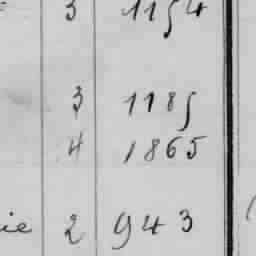 3 1154
3 1185
4 1865
ie 2 943